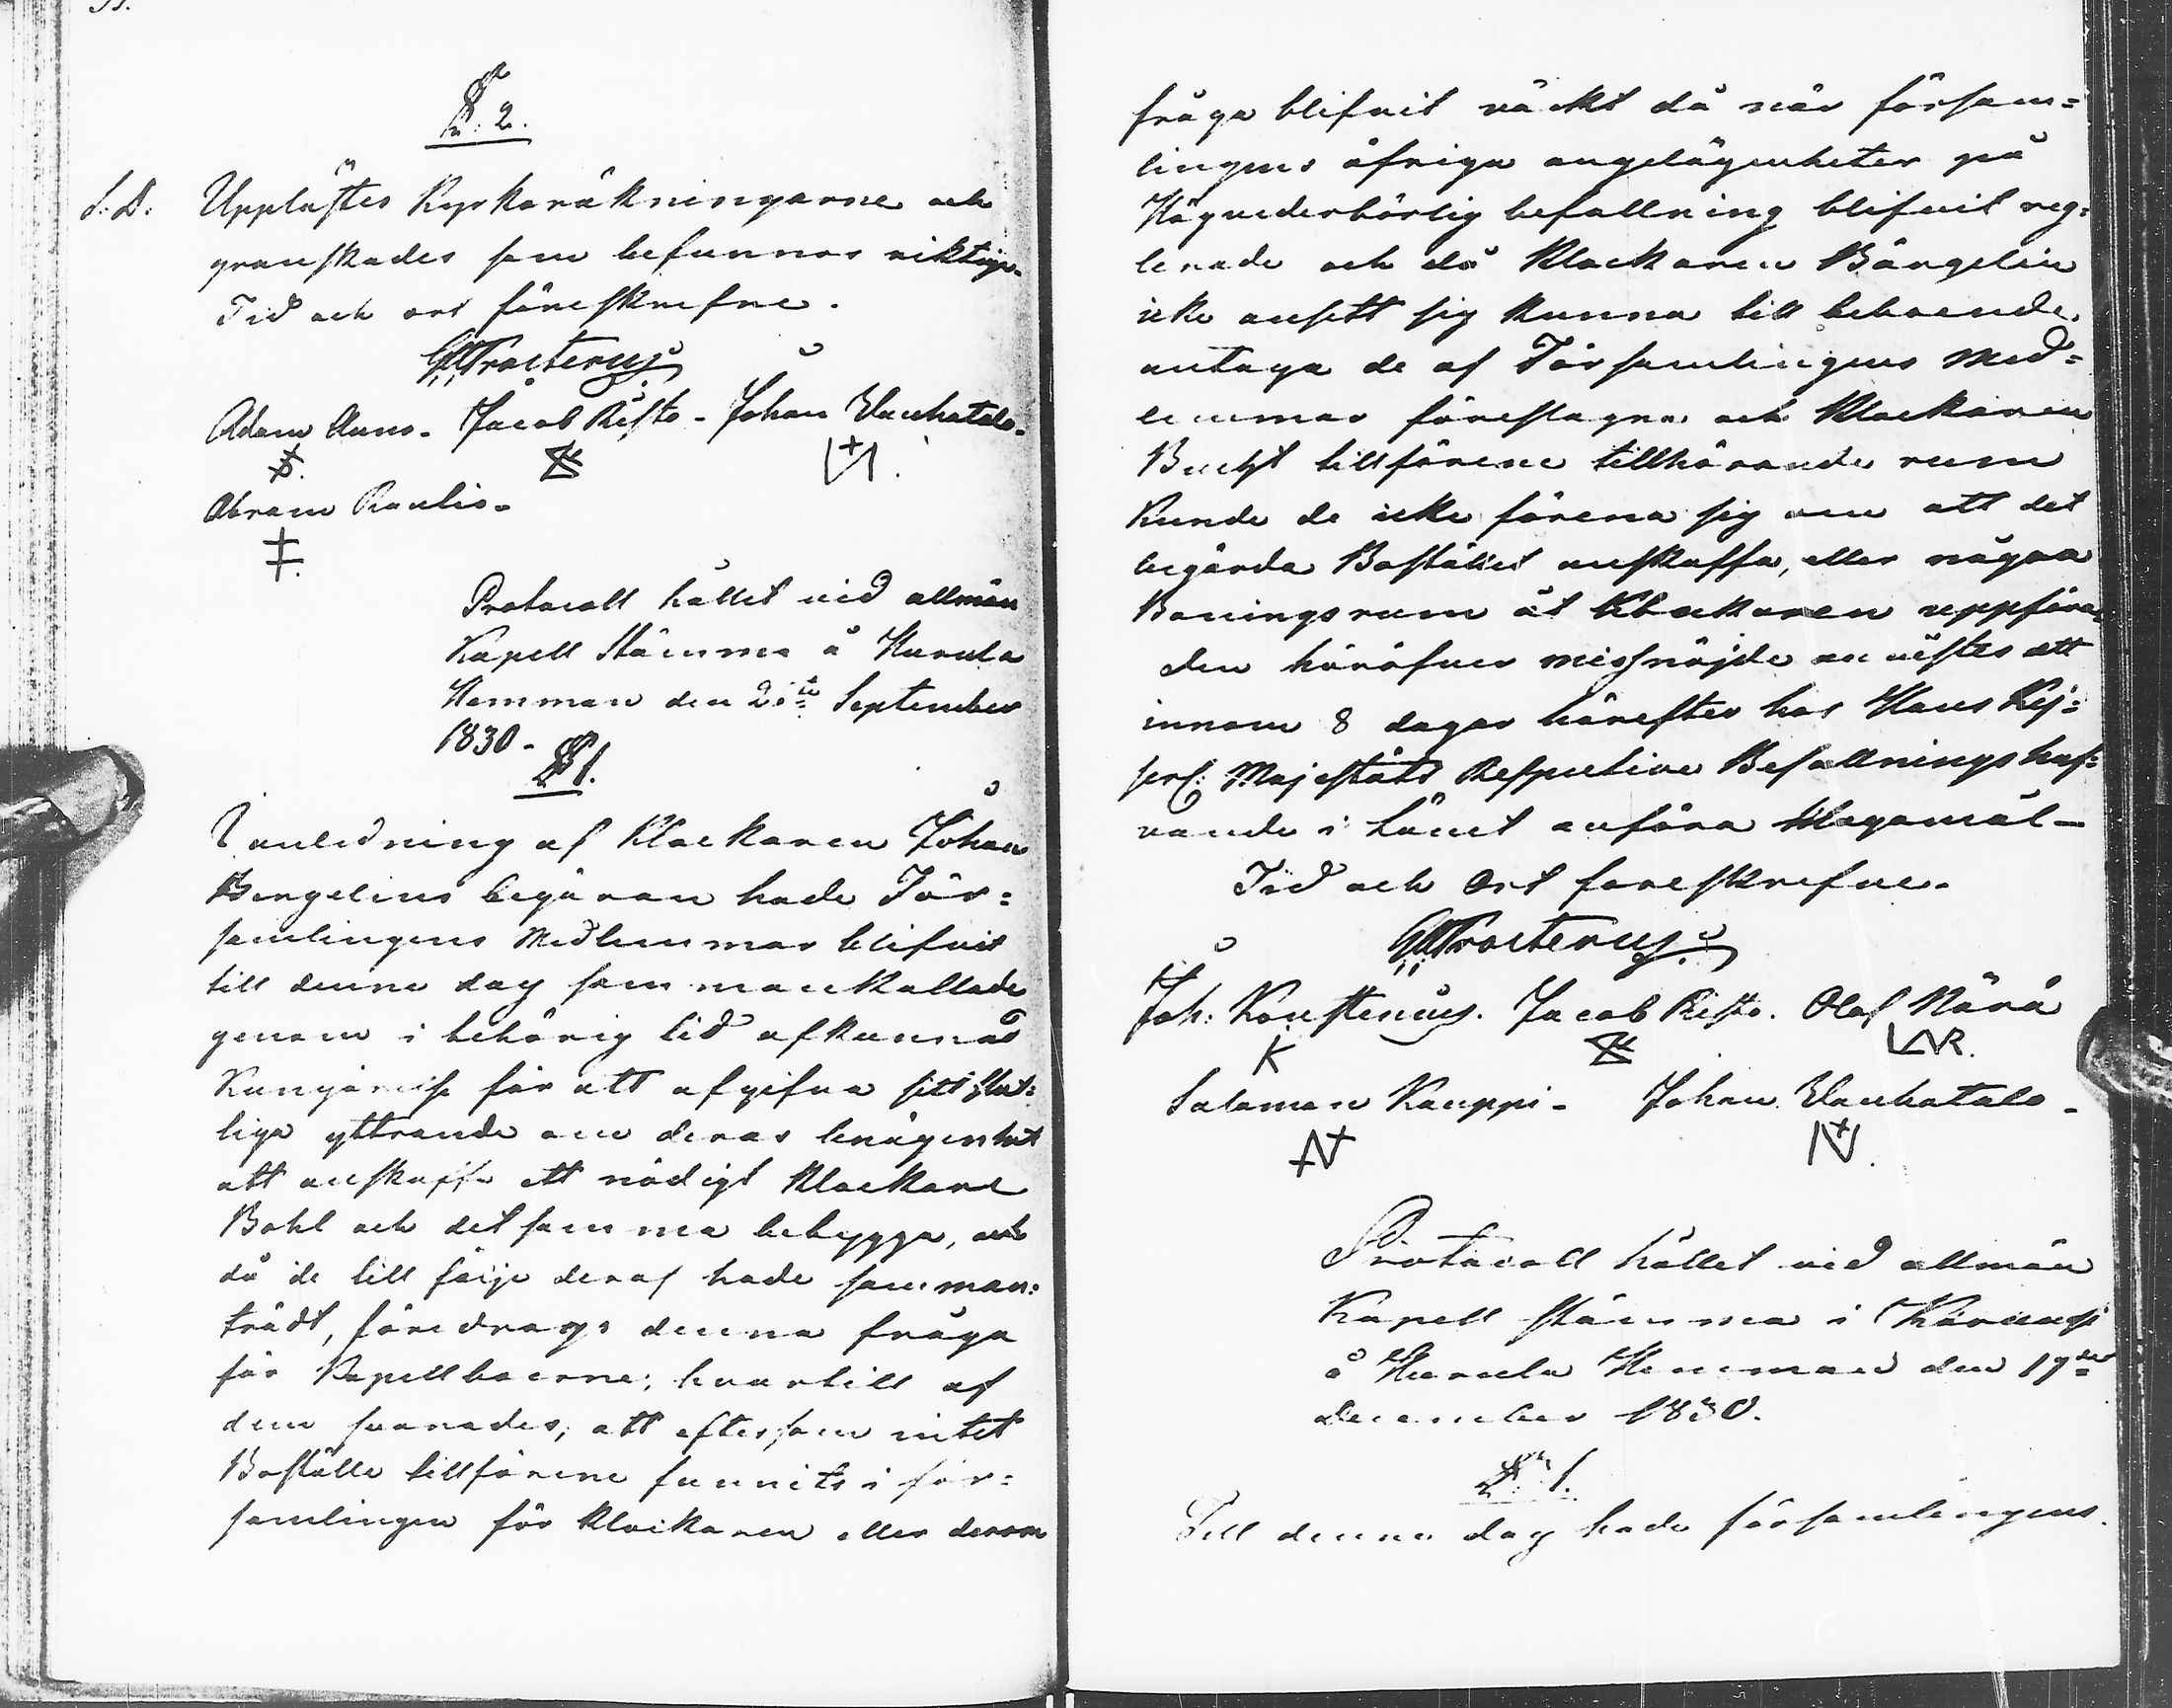 § 2.
S. D. Upplästes Kyrkoräkningarne och
granskades som befunnos riktiga.
Tid och ort föreskrefne.
Adam Huns. Jacob Risto. Johan Vanhatalo.
Abram Raulio.
Protocoll hållet vid allmän
Kapell Stämma å Hurula
Hemman den September
1830.
§ 1.
I anledning af Klockaren Johan
Bergelins begäran hade För=
samlingens Medlemmar blifvit
till denne dag sammankallade
genom i behörig tid afkunnad
Kungörelse för att afgifva sitt slut=
liga yttrande om deras benägenhet
att anskaffa ett nödigt Klockare
Bohl och det samma bebygga, och
då de till följe deraf hade samman=
trädt, föredrogs denna fråga
för Kapellboerne; hvartill af
dem svarades, att eftersom intet
Boställe tillförene funnits i för=
samlingen för Klockaren eller derom
fråga blifvit väckt då när försam=
lingens öfriga angelägenheter på
Högvederbörlig befallning blifvit reg=
lerade och då Klockaren Bängelin
icke ansett sig kunna till beboende
antaga de af Församlingens Med=
lemmar föreslagna och Klockaren
Bucht tillförene tillhörande rum
Kunde de icke förena sig om att det
begärda Bostället anskaffa, eller några
Boningsrum åt Klockaren uppföra
den häröfver missnöjde anvistes att
innom 8 dagar härefter hos Hans Kej=
serl: Majestäts Respective Befallningshaf=
vande i Länet anföra Klagomål.
Tid och Ort foreskrefne.
Joh: Konstenius. Jacob Risto. Olof Närä
Salomon Kauppi. Johan Vanhatalo.
Protocoll hållet vid allmän
Kapell stämma i Karungi
å Hurula Hemman den 19de
december 1830.
§ 1.
Till denne dag hade församlingens